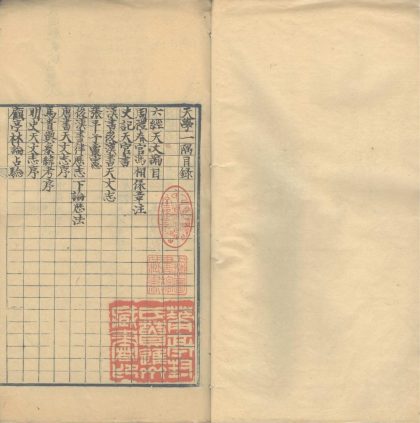 天學一隅目錄
六經天文論目
周禮春官馮相保章注
史記天官書
漢書後漢書天文志
張平子靈憲
後漢書律厯志下論厯法
唐書天文志序
馬貴與象緯考序
明史天文志序
顧亭林論占驗